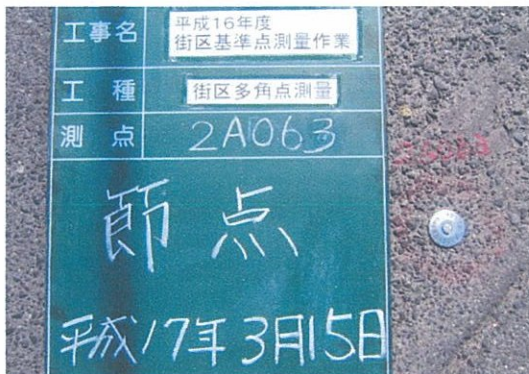 工事名
平成16年度
街区基準点測量作業
工種
街区多角点測量
測点
2A063
節点
平成17年3月15日